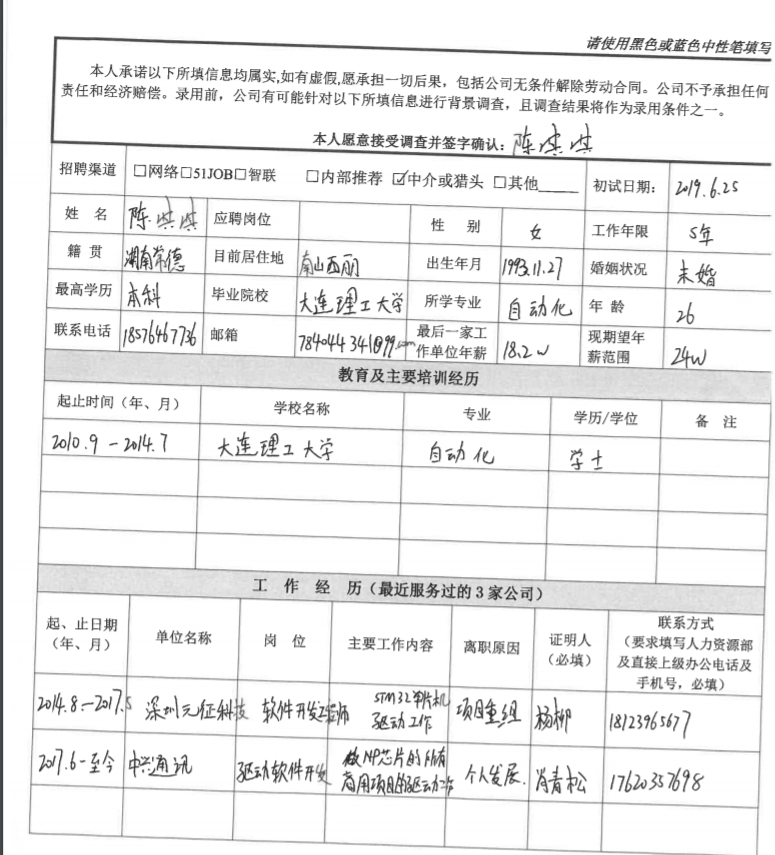 请使用黑色或蓝色中性笔填写
本人承诺以下所填信息均属实,如有虚假,愿承担一切后果，包括公司无条件解除劳动合同。公司不予承担任何
责任和经济赔偿。录用前，公司有可能针对以下所填信息进行背景调查，且调查结果将作为录用条件之一。
本人愿意接受调查并签字确认：陈淇淇
招聘渠道 □网络□51JOB□智联 □内部推荐 ☑中介或猎头 □其他_____ 初试日期： 2019.6.25
姓 名 陈淇淇 应聘岗位 性 别 女 工作年限 5年
籍 贯 湖南常德 目前居住地 南山西丽 出生年月 1993.11.27 婚姻状况 未婚
最高学历 本科 毕业院校 大连理工大学 所学专业 自动化 年 龄 26
联系电话 18576467736 邮箱 784044341@qq.com 最后一家工作单位年薪 18.2w 现期望年薪范围 24w
教育及主要培训经历
起止时间（年、月） 学校名称 专业 学历/学位 备 注
2010.9-2014.7 大连理工大学 自动化 学士
工 作 经 历（最近服务过的3家公司）
起、止日期（年、月） 单位名称 岗 位 主要工作内容 离职原因 证明人（必填） 联系方式（要求填写人力资源部及直接上级办公电话及手机号，必填）
2014.8-2017.5 深圳元征科技 软件开发工程师 STM32单片机驱动工作 项目重组 杨柳 18123965677
2017.6-至今 中兴通讯 驱动软件开发 做NP芯片的所有商用项目的驱动工作 个人发展. 肖青松 17620357698